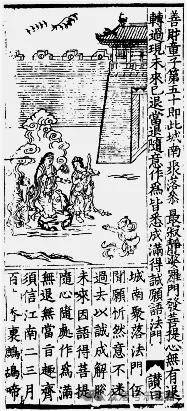 善財童子第五十即此城南聚落叅 最寂靜婆羅門發菩提心無有退
轉過現未來已退當退隨意作為皆悉成滿得誠願語法門 讚曰
城南聚落法門低
聞願忻然意不迷
過去以誠成解脫
未來因語得菩提
隨心隨處作為滿
無退無當旨趣齊
須信江南二三月
百 裏鷓鴣啼